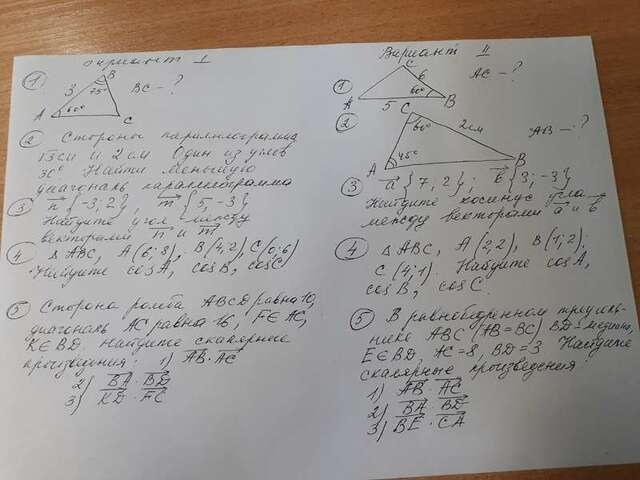 Вариант I
1
3
B
75°
A
60°
C
BC - ?
2 Стороны параллелограмма
√3 см и 2 см Один из углов
30° Найти меньшую
диагональ параллелограмма
3 n {-3; 2}, m {5; -3}
Найдите угол между
векторами n и m
4 △ABC, A(6; 8), B(4; 2), C(0; 6)
Найдите cosA, cosB, cosC
5 Сторона ромба ABCD равна 10,
диагональ AC равна 16, F∈AC,
K∈BD. Найдите скалярные
произведения: 1) AB · AC
2) BA · BD
3) KD · FC
Вариант II
1
C
6
60°
A
5
B
AC - ?
2
C
60°
2 см
A
45°
B
AB - ?
3 a {7; 2}; b {3; -3}
Найдите косинус угла
между векторами a и b
4 △ABC, A(2; 2), B(1; 2);
C(4; 1). Найдите cosA,
cosB, cosC.
5 В равнобедренном треуголь-
нике ABC (AB=BC) BD - медиана,
E∈BD, AC=8, BD=3 Найдите
скалярные произведения
1) AB · AC
2) BA BD
3) BE · CA